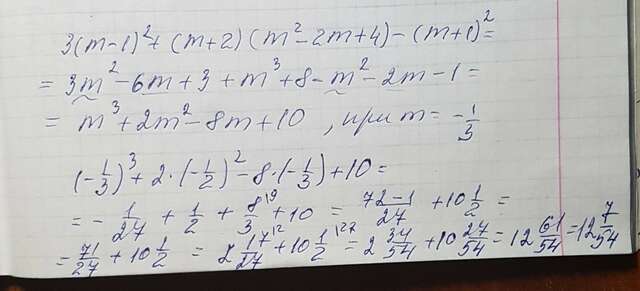 3(m-1)²+(m+2)(m²-2m+4)-(m+1)²=
= 3m²-6m+3+m³+8-m²-2m-1=
= m³+2m²-8m+10, при m= -1/3
(-1/3)³+2·(-1/2)²-8·(-1/3)+10=
= -1/27 + 1/2 + 8/3 \9 +10 = 72-1/27 +10 1/2 =
= 71/27 +10 1/2 = 2 17/27 \2 +10 1/2 \27 = 2 34/54 +10 27/54 = 12 61/54 =12 7/54